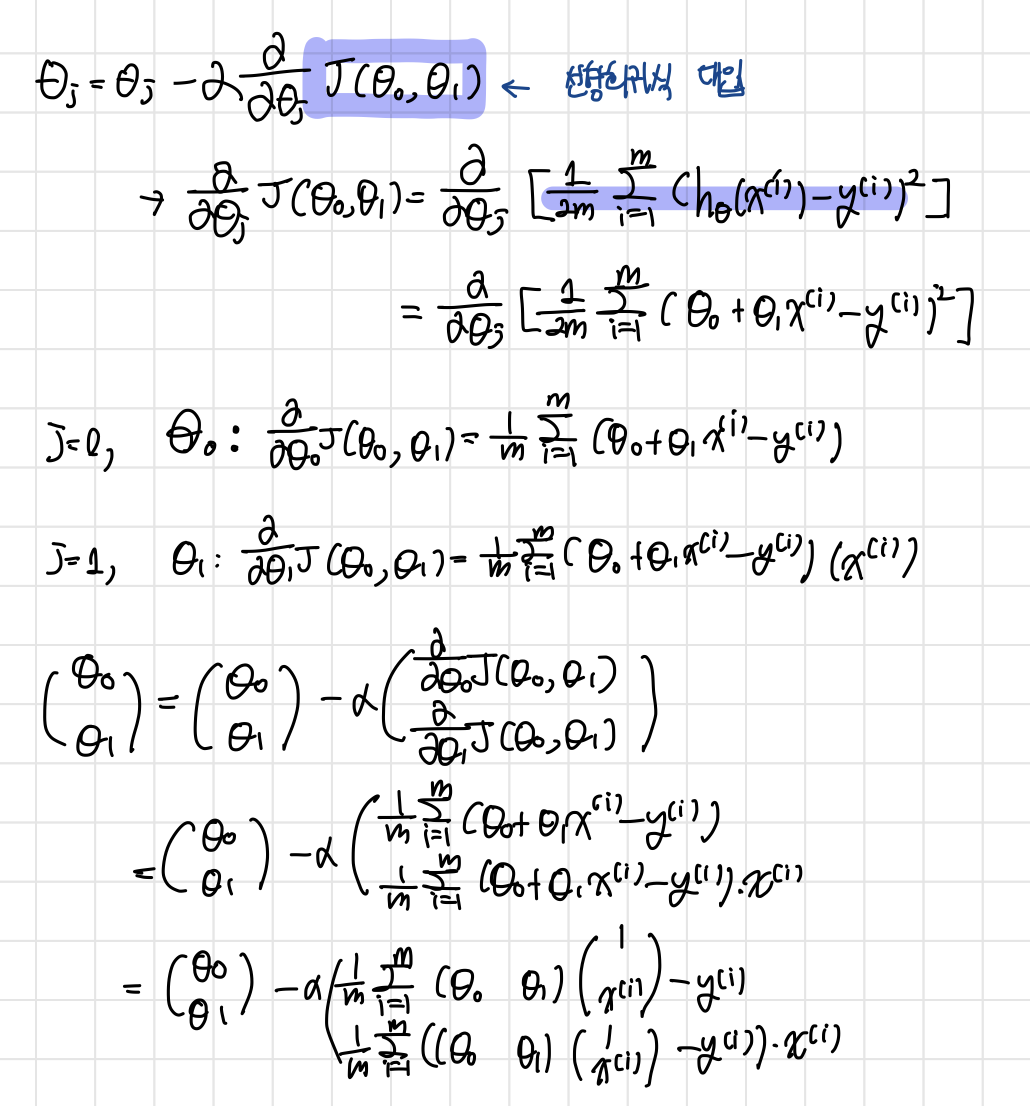 θⱼ = θⱼ - α ∂/∂θⱼ J(θ₀, θ₁) ← 선형회귀식 대입
→ ∂/∂θⱼ J(θ₀,θ₁) = ∂/∂θⱼ [ 1/2m ∑ᵢ₌₁ᵐ (h_θ(x⁽ⁱ⁾) - y⁽ⁱ⁾)² ]
= ∂/∂θⱼ [ 1/2m ∑ᵢ₌₁ᵐ (θ₀ + θ₁x⁽ⁱ⁾ - y⁽ⁱ⁾)² ]
J=0, θ₀ : ∂/∂θ₀ J(θ₀, θ₁) = 1/m ∑ᵢ₌₁ᵐ (θ₀ + θ₁x⁽ⁱ⁾ - y⁽ⁱ⁾)
J=1, θ₁ : ∂/∂θ₁ J(θ₀, θ₁) = 1/m ∑ᵢ₌₁ᵐ (θ₀ + θ₁x⁽ⁱ⁾ - y⁽ⁱ⁾) (x⁽ⁱ⁾)
(θ₀ θ₁) = (θ₀ θ₁) - α ( ∂/∂θ₀ J(θ₀, θ₁)
∂/∂θ₁ J(θ₀, θ₁) )
= (θ₀ θ₁) - α ( 1/m ∑ᵢ₌₁ᵐ (θ₀ + θ₁x⁽ⁱ⁾ - y⁽ⁱ⁾)
1/m ∑ᵢ₌₁ᵐ (θ₀ + θ₁x⁽ⁱ⁾ - y⁽ⁱ⁾)·x⁽ⁱ⁾
= (θ₀ θ₁) - α ( 1/m ∑ᵢ₌₁ᵐ (θ₀ θ₁) (1 x⁽ⁱ⁾) - y⁽ⁱ⁾
1/m ∑ᵢ₌₁ᵐ ((θ₀ θ₁) (1 x⁽ⁱ⁾) - y⁽ⁱ⁾)·x⁽ⁱ⁾